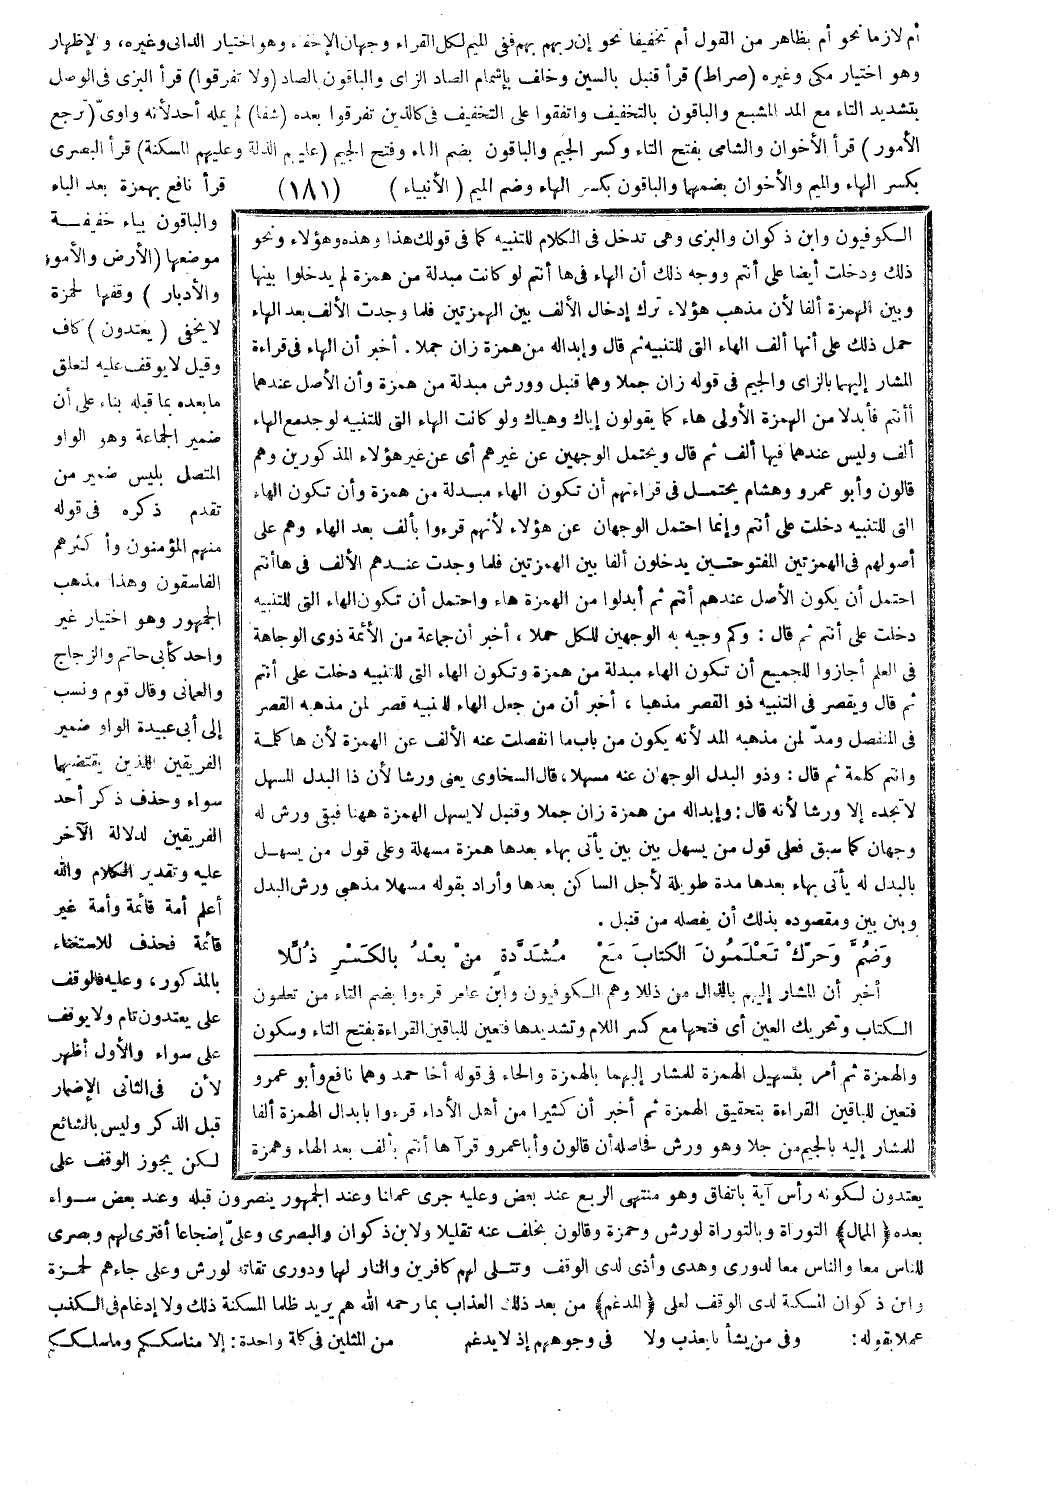 أم لازما نحو أم بظاهر من القول أم تخفيفا نحو إن ربهم بهم ففي الميم لكل القراء وجهان الإخفاء وهو اختيار الداني وغيره، والإظهار
وهو اختيار مكي وغيره (صراط) قرأ قنبل بالسين وخلف بإشمام الصاد الزاى والباقون بالصاد (ولا تفرقوا) قرأ البزى فى الوصل
بتشديد التاء مع المد المشبع والباقون بالتخفيف واتفقوا على التخفيف فى كالذين تفرقوا بعده (شفا) لم يمله أحد لأنه واوىّ (ترجع
الأمور) قرأ الأخوان والشامى بفتح التاء وكسر الجيم والباقون بضم التاء وفتح الجيم (عليهم الذلة وعليهم المسكنة) قرأ البصرى
بكسر الهاء والميم والأخوان بضمها والباقون بكسر الهاء وضم الميم (الأنبياء)
(١٨١)
قرأ نافع بهمزة بعد الباء
والباقون بياء خفيفة
موضعها (الأرض والأمور
والأدبار) وقفها لحمزة
لا يخفى (يعتدون) كاف
وقيل لا يوقف عليه لتعلق
ما بعده بما قبله بناء على أن
ضمير الجماعة وهو الواو
المتصل بليس ضمير من
تقدم ذكره فى قوله
منهم المؤمنون وأكثرهم
الفاسقون وهذا مذهب
الجمهور وهو اختيار غير
واحد كأبى حاتم والزجاج
والعمانى وقال قوم ونسب
إلى أبى عبيدة الواو ضمير
الفريقين اللذين يقتضيها
سواء وحذف ذكر أحد
الفريقين لدلالة الآخر
عليه وتقدير الكلام والله
أعلم أمة قائمة وأمة غير
قائمة فحذف للاستغناء
بالمذكور، وعليه فالوقف
على يعتدون تام ولا يوقف
على سواء والأول أظهر
لأن فى الثانى الإضمار
قبل الذكر وليس بالشائع
لكن يجوز الوقف على
الكوفيون وابن ذكوان والبزى وهى تدخل فى الكلام للتنبيه كما فى قولك هذا وهذه وهؤلاء ونحو
ذلك ودخلت أيضا على أنتم ووجه ذلك أن الهاء فى ها أنتم لو كانت مبدلة من همزة لم يدخلوا بينها
وبين الهمزة ألفا لأن مذهب هؤلاء ترك إدخال الألف بين الهمزتين فلما وجدت الألف بعد الهاء
حمل ذلك على أنها ألف الهاء التى للتنبيه ثم قال وإبداله من همزة زان جملا . أخبر أن الهاء فى قراءة
المشار إليهما بالزاى والجيم فى قوله زان جملا وهما قنبل وورش مبدلة من همزة وأن الأصل عندهما
أأنتم فأبدلا من الهمزة الأولى هاء كما يقولون إياك وهياك ولو كانت الهاء التى للتنبيه لوجد مع الهاء
ألف وليس عندهما فيها ألف ثم قال ويحتمل الوجهين عن غيرهم أى عن غير هؤلاء المذكورين وهم
قالون وأبو عمرو وهشام يحتمل فى قراءتهم أن تكون الهاء مبدلة من همزة وأن تكون الهاء
التى للتنبيه دخلت على أنتم وإنما احتمل الوجهان عن هؤلاء لأنهم قرءوا بألف بعد الهاء وهم على
أصولهم فى الهمزتين المفتوحتين يدخلون ألفا بين الهمزتين فلما وجدت عندهم الألف فى هاأنتم
احتمل أن يكون الأصل عندهم أنتم ثم أبدلوا من الهمزة هاء واحتمل أن تكون الهاء التى للتنبيه
دخلت على أنتم ثم قال : وكم وجيه به الوجهين للكل حملا ، أخبر أن جماعة من الأئمة ذوى الوجاهة
فى العلم أجازوا للجميع أن تكون الهاء مبدلة من همزة وتكون الهاء التى للتنبيه دخلت على أنتم
ثم قال ويقصر فى التنبيه ذو القصر مذهبا ، أخبر أن من جعل الهاء للتنبيه قصر لمن مذهبه القصر
فى المنفصل ومدّ لمن مذهبه المد لأنه يكون من باب ما انفصلت عنه الألف عن الهمزة لأن ها كلمة
وانتم كلمة ثم قال : وذو البدل الوجهان عنه مسهلا، قال السخاوى يعنى ورشا لأن ذا البدل المسهل
لا تجده إلا ورشا لأنه قال : وإبداله من همزة زان جملا وقنبل لا يسهل الهمزة ههنا فبقى ورش له
وجهان كما سبق فعلى قول من يسهل بين بين يأتى بهاء بعدها همزة مسهلة وعلى قول من يسهل
بالبدل له يأتى بهاء بعدها مدة طويلة لأجل الساكن بعدها وأراد بقوله مسهلا مذهبى ورش البدل
وبين بين ومقصوده بذلك أن يفصله من قنبل .
وَضُمَّ وَحَرِّكْ تَعْلَمُونَ الكِتَابَ مَعْ مُشَدَّدَةٍ مِنْ بَعْدُ بالكَسْرِ ذُلِّلَا
أخبر أن المشار إليهم بالذال من ذللا وهم الكوفيون وابن عامر قرءوا بضم التاء من تعلمون
الكتاب وتحريك العين أى فتحها مع كسر اللام وتشديدها فتعين للباقين القراءة بفتح التاء وسكون
والهمزة ثم أمر بتسهيل الهمزة للمشار إليهما بالهمزة والحاء فى قوله أخا حمد وهما نافع وأبو عمرو
فتعين للباقين القراءة بتحقيق الهمزة ثم أخبر أن كثيرا من أهل الأداء قرءوا بابدال الهمزة ألفا
للمشار إليه بالجيم من جلا وهو ورش فحاصله أن قالون وأبا عمرو قرآ ها أنتم بألف بعد الهاء وهمزة
يعتدون لكونه رأس آية باتفاق وهو منتهى الربع عند بعض وعليه جرى عملنا وعند الجمهور ينصرون قبله وعند بعض سواء
بعده ﴿الممال﴾ التوراة وبالتوراة لورش وحمزة وقالون بخلف عنه تقليلا ولابن ذكوان والبصرى وعلىّ إضجاعا أفترى لهم وبصرى
للناس معا والناس معا لدورى وهدى وأذى لدى الوقف وتتلى لهم كافرين والنار لهما ودورى تقاته لورش وعلى جاءهم لحمزة
وابن ذكوان المسكنة لدى الوقف لعلى ﴿المدغم﴾ من بعد ذلك العذاب بما رحمه الله هم يريد ظلما المسكنة ذلك ولا إدغام فى الكذب
عملا بقوله : وفى من يشأ يا يعذب ولا فى وجوههم إذ لا يدغم من المثلين فى كلمة واحدة : إلا مناسككم وماسلككم